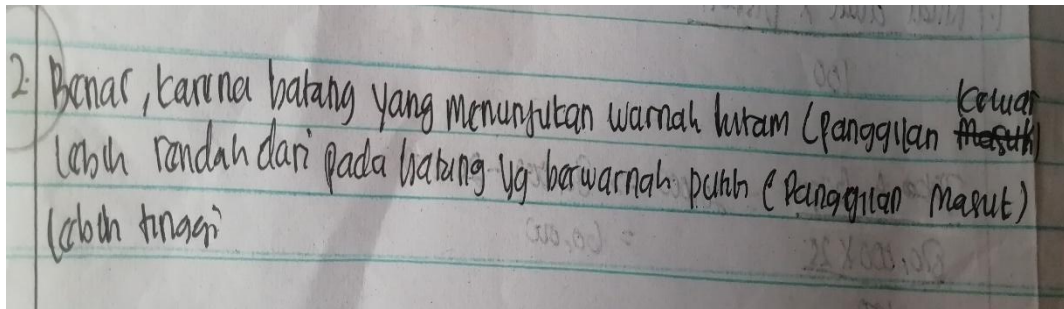 2. Benar, karena batang yang menunjukan warnah hitam (panggilan keluar
lebih rendah dari pada batang yg berwarnah putih (panggilan masuk)
lebih tinggi